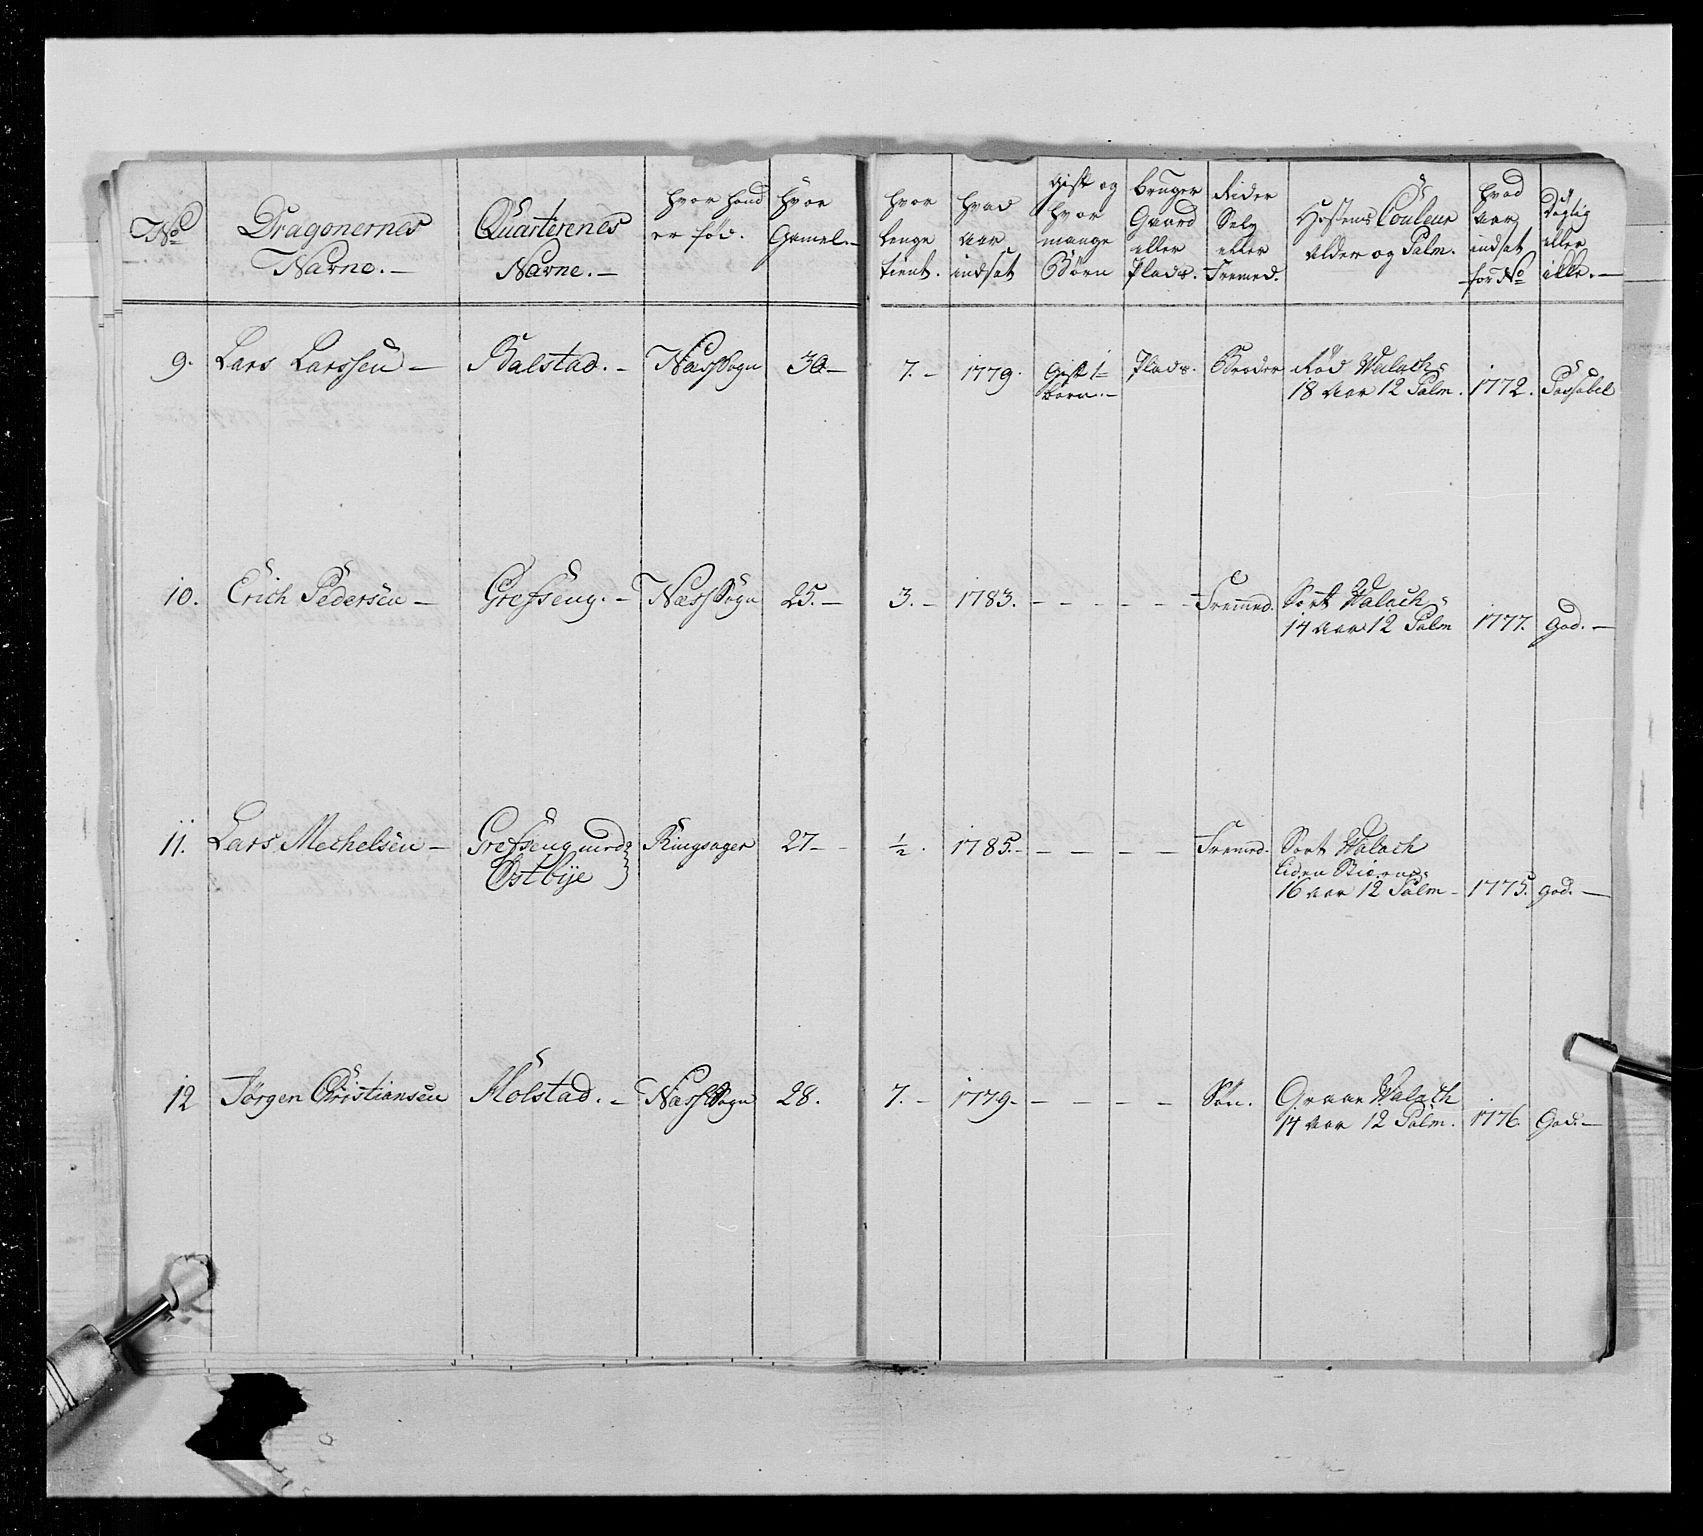 No
Dragonernes
Navne. —
Quarterenes
Navne. —
hvor hand
er fød.
hvor
Gamel. —
hvor
lenge
tient.
hvad
aar
indsat
Gift og
hvor
mange
Börn
bruger
Gaard
eller
Plads.
Rider
Selv
eller
Fremed.
Hestens Couleur
alder og Palm.
hvad
aar
indsat
for No
Dygtig
eller
ille. —
9. Lars Larssen — Balstad. — Næss Sogn 30 — 7. — 1779. Gift 1 Plads. Broder Rød Walach
barn. — 18 aar 12 Palm. 1772. Passabel
10. Erich Pedersen — Grefseng. — Næss Sogn 25. — 3. — 1783. — — — — — Fremed. Sort Walach
14 aar 12 Palm 1777. God. —
11. Lars Mechelsen — Grefseng med Ringsager 27 — ½. 1785. — — — — — Fremed. Sort Walach
Østbÿe liden Stierne
16 aar 12 Palm — 1775. god. —
12 Jörgen Christiansen Molstad. — Næss Sogn 28. 7. — 1779. — — — — — Søn. Graae Walach
14 aar 12 Palm. 1776. God. —